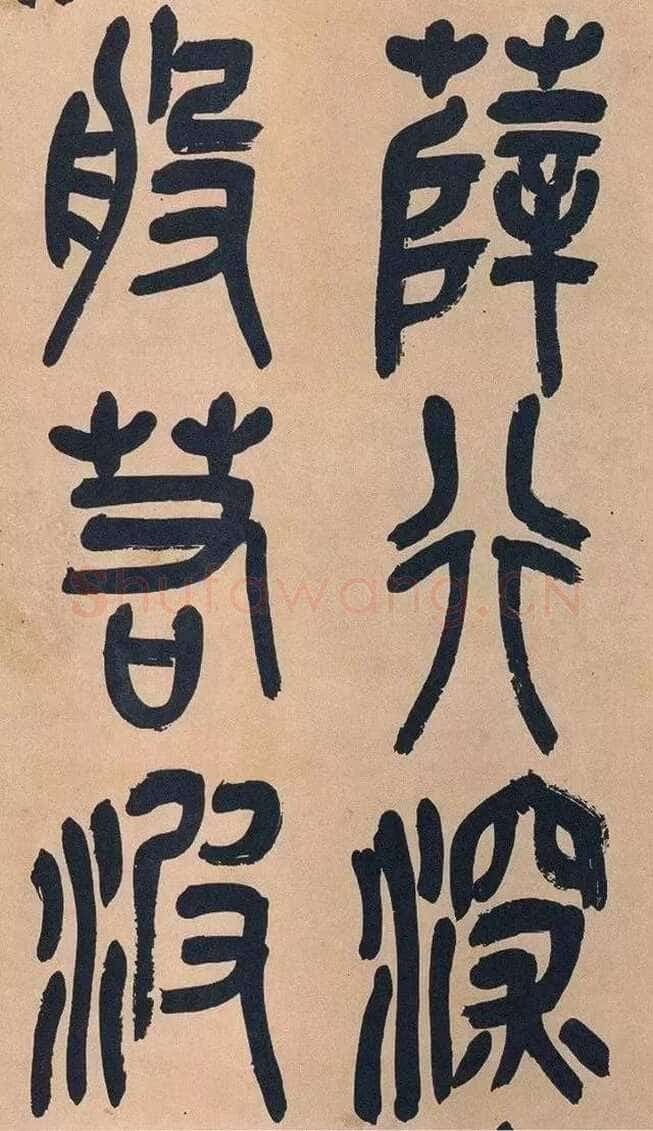 薩行深
般若波
Shufawang.CN